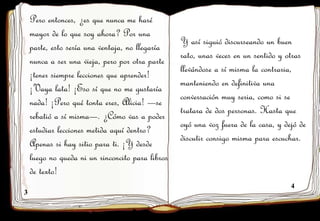 Pero entonces, ¿es que nunca me haré
mayor de lo que soy ahora? Por una
parte, esto sería una ventaja, no llegaría
nunca a ser una vieja, pero por otra parte
¡tener siempre lecciones que aprender!
¡Vaya lata! ¡Eso si que no me gustaría
nada! ¡Pero qué tonta eres, Alicia! —se
rebatió a sí misma—. ¿Cómo vas a poder
estudiar lecciones metida aquí dentro?
Apenas si hay sitio para ti. ¡Y desde
luego no queda ni un rinconcito para libros
de texto!
3
Y así siguió discurseando un buen
rato, unas veces en un sentido y otras
llevándose a sí misma la contraria,
manteniendo en definitiva una
conversación muy seria, como si se
tratara de dos personas. Hasta que
oyó una voz fuera de la casa, y dejó de
discutir consigo misma para escuchar.
4